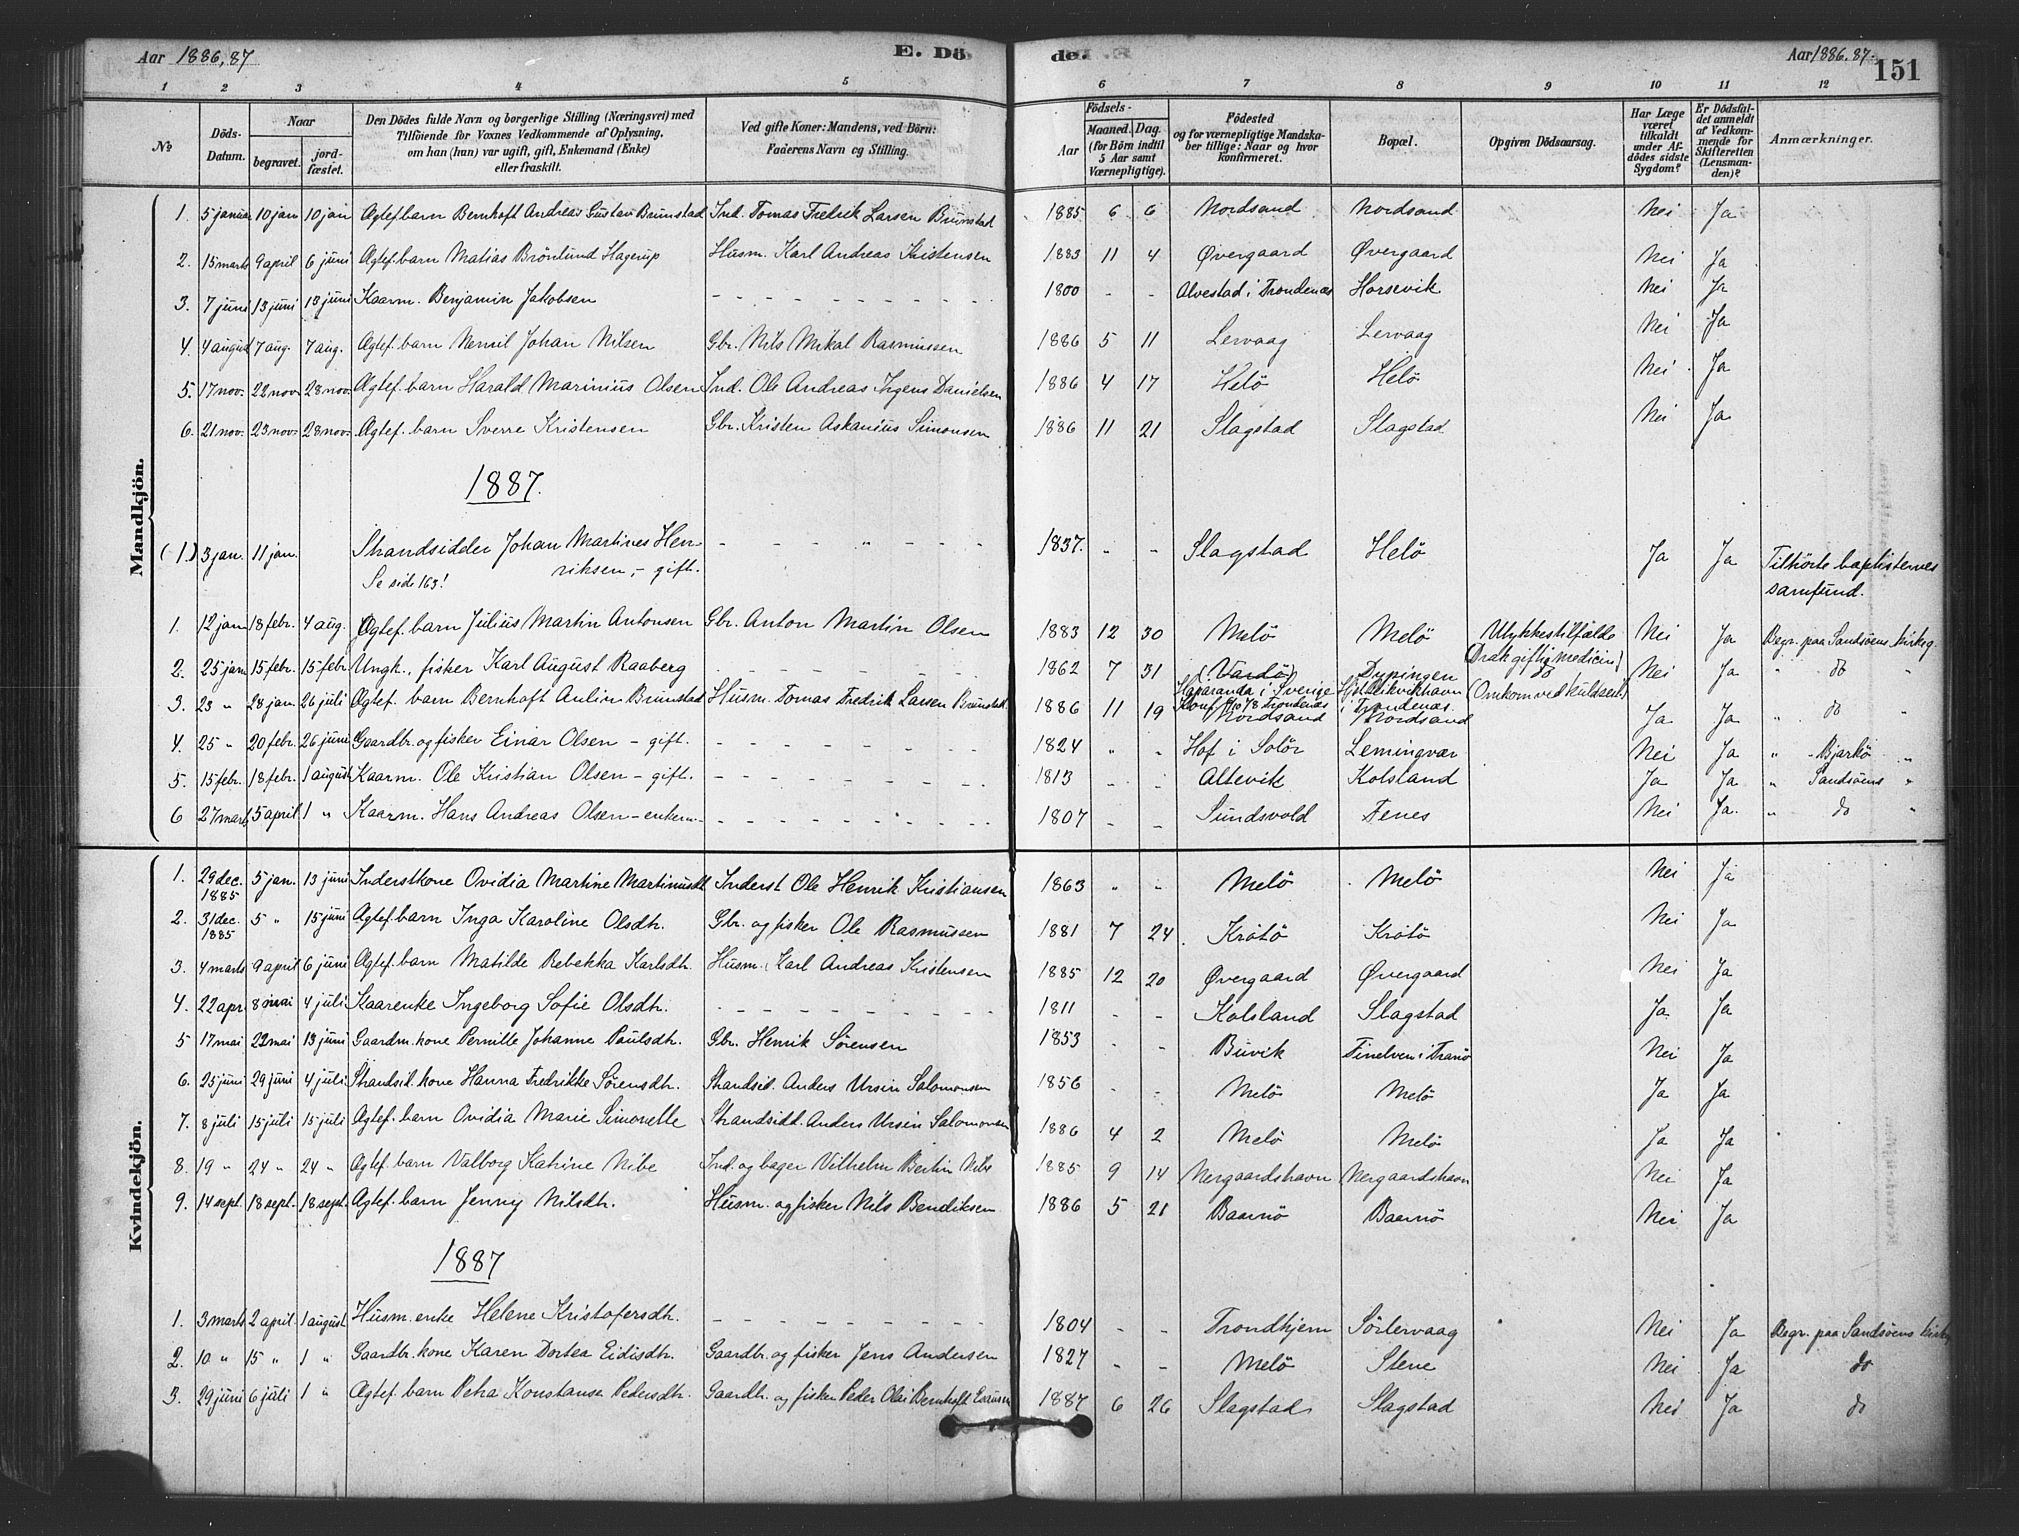 Aar 1886,87 E. Dö
1 2 3 4 5
№ Döds-Datum. Naar begravet. jord-fæstet. Den Dödes fulde Navn og borgerlige Stilling (Næringsvei) med Tilföiende for Voxnes Vedkommende af Oplysning, om han (hun) var ugift, gift, Enkemand (Enke) eller fraskilt. Ved gifte Koner: Mandens, ved Börn: Faderens Navn og Stilling.
de. Aar 1886.87. 151
6 7 8 9 10 11 12
Födsels- Aar Maaned. Dag. (for Börn indtil 5 Aar samt Værnepligtige). Födested og for værnepligtige Mandska-ber tillige: Naar og hvor konfirmeret. Bopæl. Opgiven Dödsaarsag. Har Læge været tilkaldt under Af-dödes sidste Sygdom? Er Dödsfal-det anmeldt af Vedkom-mende for Skifteretten (Lensman-den)? Anmærkninger.
Mandkjön.
1. 5 januar 10 jan 10 jan Ægtef. barn Bernhoft Andreas Gustav Brunstad Ind. Tomas Fredrik Larsen Brunstad 1885 6 6 Nordsand Nordsand Nei Ja
2. 15 marts 9 april 6 juni Ægtef. barn Matias Brönlund Hagerup Husm. Karl Andreas Kristensen 1883 11 4 Øvergaard Øvergaard Nei Ja
3. 7 juni 13 juni 13 juni Kaarm. Benjamin Jakobsen - - - 1800 - - Alvestad i Trondenæs Horsevik Nei Ja
4. 4 august 7 aug. 7 aug. Ægtef. barn Johan Nilsen Gbr. Nils Mikal Rasmussen 1886 5 11 Lervaag Lervaag Nei Ja
5. 17 nov. 22 nov. 28 nov. Ægtef. barn Harald Marinius Olsen Ind. Ole Andreas Irgens Danielsen 1886 4 17 Helö Helö Nei Ja
6. 21 nov. 23 nov. 28 nov. Ægtef. barn Sverre Kristensen Gbr. Kristen Askanius Simonsen 1886 11 21 Slagstad Slagstad Nei Ja
1887.
(1.) 3 jan. 11 jan. Strandsidder Johan Martines Hen- - - - 1837. - - Slagstad Helö Ja Ja Tilhörte baptisternes
Se side 163! riksen, - gift. samfund.
1. 12 jan 18 febr. 4 aug. Ægtef. barn Julius Martin Antonsen Gbr. Anton Martin Olsen 1883 12 30 Melö Melö Ulykkestilfælde Drak giftig medicin Nei Ja Begr. paa Sandsöens kirkeg.
2. 25 jan 15 febr. 15 febr Ungk., fisker Karl August Raaberg - - - 1862 7 31 (Vardö) Haparanda i Sverige Konf. Trondenæs Dypingen i Trondenæs. do (Omkom ved kuldseil) Nei Ja " do "
3. 23 " 28 jan. 26 juli Ægtef. barn Bernhoft Anlin Brunstad Husm. Tomas Fredrik Larsen Brunstad 1886 11 19 Nordsand Nordsand Ja Ja " do "
4. 25 " 20 febr. 26 juni Gaardbr. og fisker Einar Olsen - gift. - - - 1824 " - Hof i Solör Lemingvær Nei Ja " Bjarkö "
5. 15 febr. 18 febr. 1 august Kaarm. Ole Kristian Olsen - gift. - - - 1813 - - Altevik Kolsland Ja Ja " Sandsöens "
6 27 marts 5 april 1 " Kaarm. Hans Andreas Olsen - enkem. - - - 1807 - - Sundsvold Fenes Nei Ja. " do "
Kvindekjön.
1. 29 dec. 1885 5 jan. 13 juni Inderstkone Ovidia Martine Martinusdt Inderst Ole Henrik Kristiansen 1863 " - Melö Melö Nei Ja
2. 31 dec. 1885 5 " 15 juni Ægtef. barn Inga Karoline Olsdtr. Gbr. og fisker Ole Rasmussen 1881 7 24 Krötö Krötö Nei Ja
3. 4 marts 9 april 6 juni Ægtef. barn Matilde Rebekka Karlsdtr. Husm. Karl Andreas Kristensen 1885 12 20 Øvergaard Øvergaard Nei Ja
4. 22 apr 8 mai 4 juli Kaarenke Ingeborg Sofie Olsdtr. - - - 1811 - - Kolsland Slagstad Ja Ja
5 17 mai 22 mai 13 juni Gaardm. kone Pernille Johanne Paulsdtr. Gbr. Henrik Sörensen 1853 - - Buvik Finelven i Tranö Nei Ja
6. 25 juni 29 juni 4 juli Strandsid. kone Hanna Fredrikke Sörensdtr. Strandsid. Anders Ursin Salomonsen 1856 - - Melö Melö Ja Ja
7. 8 juli 15 juli 15 juli Ægtef. barn Ovidia Marie Simonette Strandsidd. Anders Ursin Salomonsen 1886 4 2 Melö Melö Ja Ja
8. 19 " 24 " 24 " Ægtef. barn Valborg Katrine Nibe Ind. og bager Vilhelm Bertin Nibe 1885 9 14 Nergaardshavn Nergaardshavn Nei Ja
9. 14 sept. 18 sept. 18 sept. Ægtef. barn Jenny Nilsdtr. Husm. og fisker Nils Bendiksen 1886 5 21 Baarnö Baarnö Nei Ja
1887
1. 3 marts 2 april. 1 august Husm. enke Helene Kristofersdtr. - - - 1804 - - Trondhjem Sörlervaag Nei Ja Begr. paa Sandsöens kirkeg
2. 10 " 15 " 1 " Gaardbr. kone Karen Dortea Eidisdtr. Gaardbr. og fisker Jens Andersen 1827 - - Melö Stene Nei Ja do
3. 29 juni 6 juli 1 " Ægtef. barn Petra Konstanse Pedersdtr. Gaardbr. og fisker Peder Olai Bernhoft 1887 6 26 Slagstad Slagstad Nei Ja do